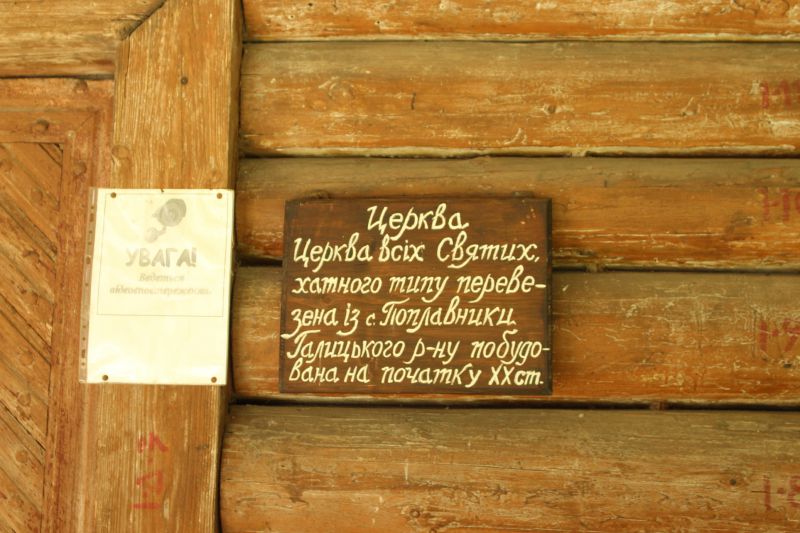 УВАГА!
Ведеться
відеоспостереження
Церква
Церква всіх Святих,
хатного типу переве-
зена із с. Поплавники
Галицького р-ну побудо-
вана на початку ХХ ст.